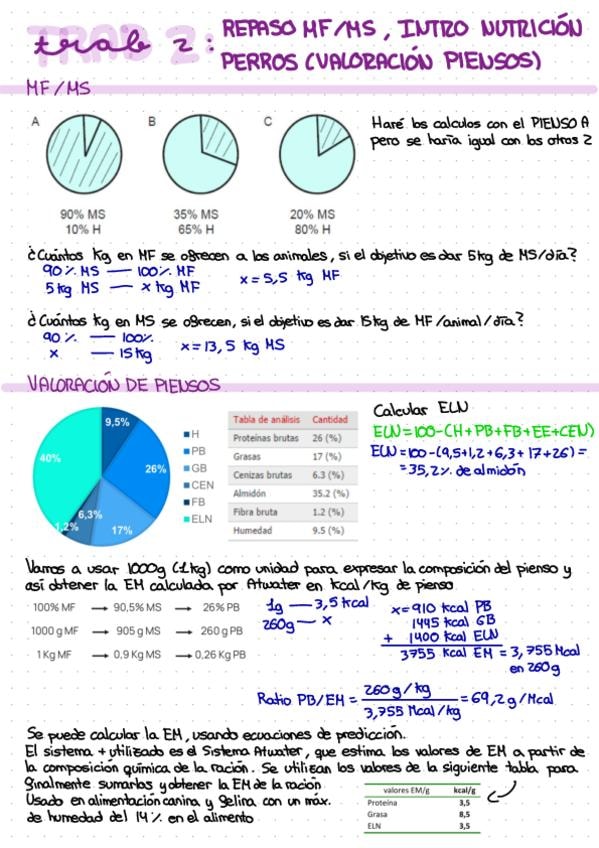 trab 2: REPASO MF/MS, INTRO NUTRICIÓN
PERROS (VALORACIÓN PIENSOS)
MF/MS
A B C
Haré los calculos con el PIENSO A
pero se haría igual con los otros 2
90% MS 35% MS 20% MS
10% H 65% H 80% H
¿Cuántos Kg en MF se ofrecen a los animales, si el objetivo es dar 5kg de MS/día?
90% MS — 100% MF
5 kg MS — x kg MF
x = 5,5 kg MF
¿Cuántos kg en MS se ofrecen, si el objetivo es dar 15kg de MF/animal/día?
90% — 100%
x — 15kg
x = 13,5 kg MS
VALORACIÓN DE PIENSOS
9,5%
26%
17%
6,3%
1,2%
40%
H
PB
GB
CEN
FB
ELN
Tabla de análisis Cantidad
Proteínas brutas 26 (%)
Grasas 17 (%)
Cenizas brutas 6.3 (%)
Almidón 35.2 (%)
Fibra bruta 1.2 (%)
Humedad 9.5 (%)
Calcular ELN
ELN = 100-(H+PB+FB+EE+CEN)
ELN = 100-(9,5+1,2+6,3+17+26) =
= 35,2% de almidón
Vamos a usar 1000g (1kg) como unidad para expresar la composición del pienso y
así obtener la EM calculada por Atwater en kcal/kg de pienso
100% MF → 90,5% MS → 26% PB
1000 g MF → 905 g MS → 260 g PB
1 Kg MF → 0,9 Kg MS → 0,26 Kg PB
1g — 3,5 kcal
260g — x
x = 910 kcal PB
1445 kcal GB
+ 1400 kcal ELN
3755 kcal EM = 3,755 Mcal
en 260g
Ratio PB/EM = 260g/kg / 3,755 Mcal/kg = 69,2 g/Mcal
Se puede calcular la EM, usando ecuaciones de predicción.
El sistema + utilizado es el Sistema Atwater, que estima los valores de EM a partir de
la composición química de la ración. Se utilizan los valores de la siguiente tabla para
finalmente sumarlos y obtener la EM de la ración
Usado en alimentación canina y felina con un máx.
de humedad del 14% en el alimento
valores EM/g kcal/g
Proteína 3,5
Grasa 8,5
ELN 3,5